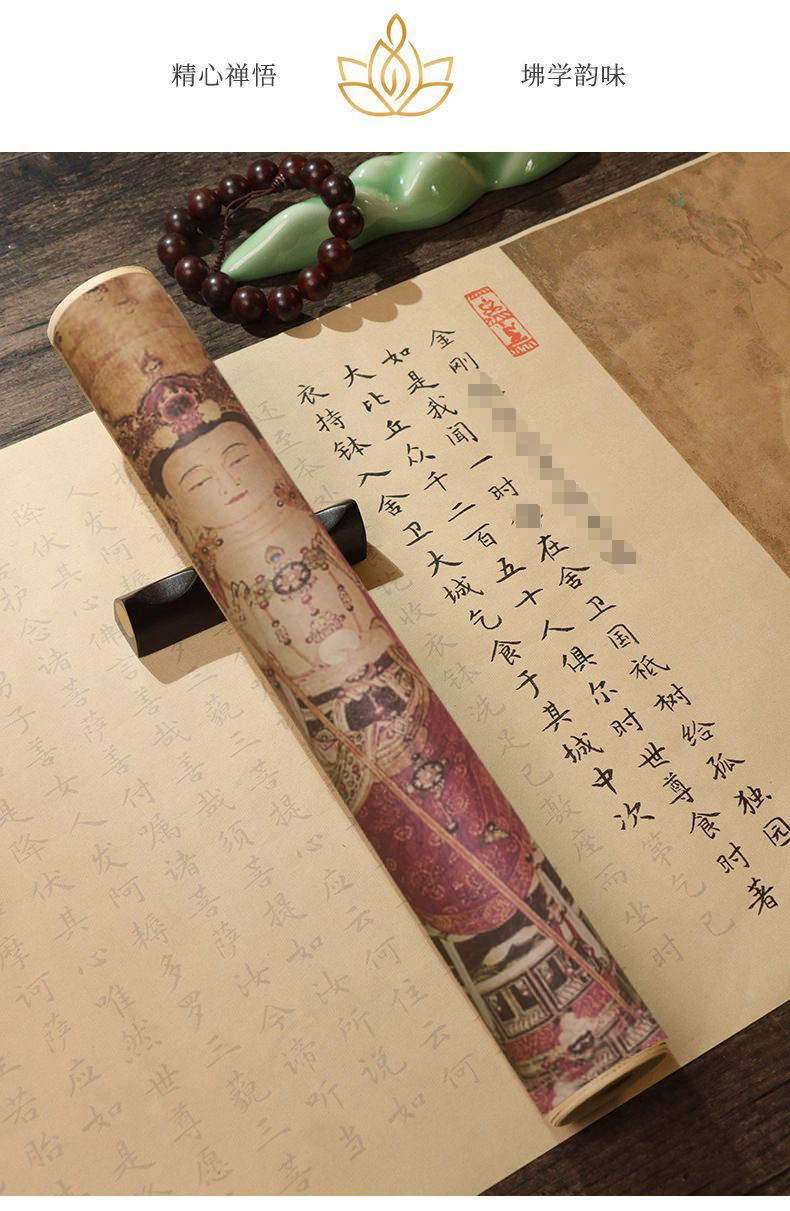 精心禅悟
坲学韵味
金刚
如是我闻一时在舍卫国祗树给孤独园
大比丘众千二百五十人俱尔时世尊食时著
衣持钵入舍卫大城乞食于其城中次第乞已
还至本收衣钵洗足已敷座而坐时
人发阿藐三菩提心应云何住云何
降伏其心佛言善哉善哉须菩提如汝所说如
护念诸菩萨善付嘱诸菩萨汝今谛听当
子善女人发阿耨多罗三藐三菩
是降伏其心唯然世尊愿
摩诃萨应如是
若胎